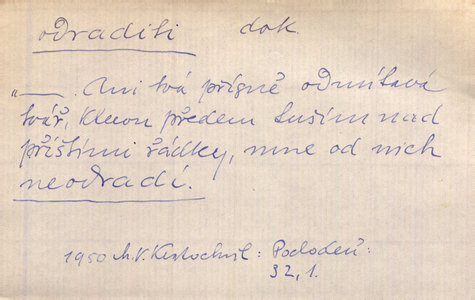 odraditi dok.
„—. Ani tvá přísně odmítavá
tvář, kterou předem tuším nad
příštími řádky, mne od nich
neodradí.
1950 M.V. Kratochvíl:
32, 1.